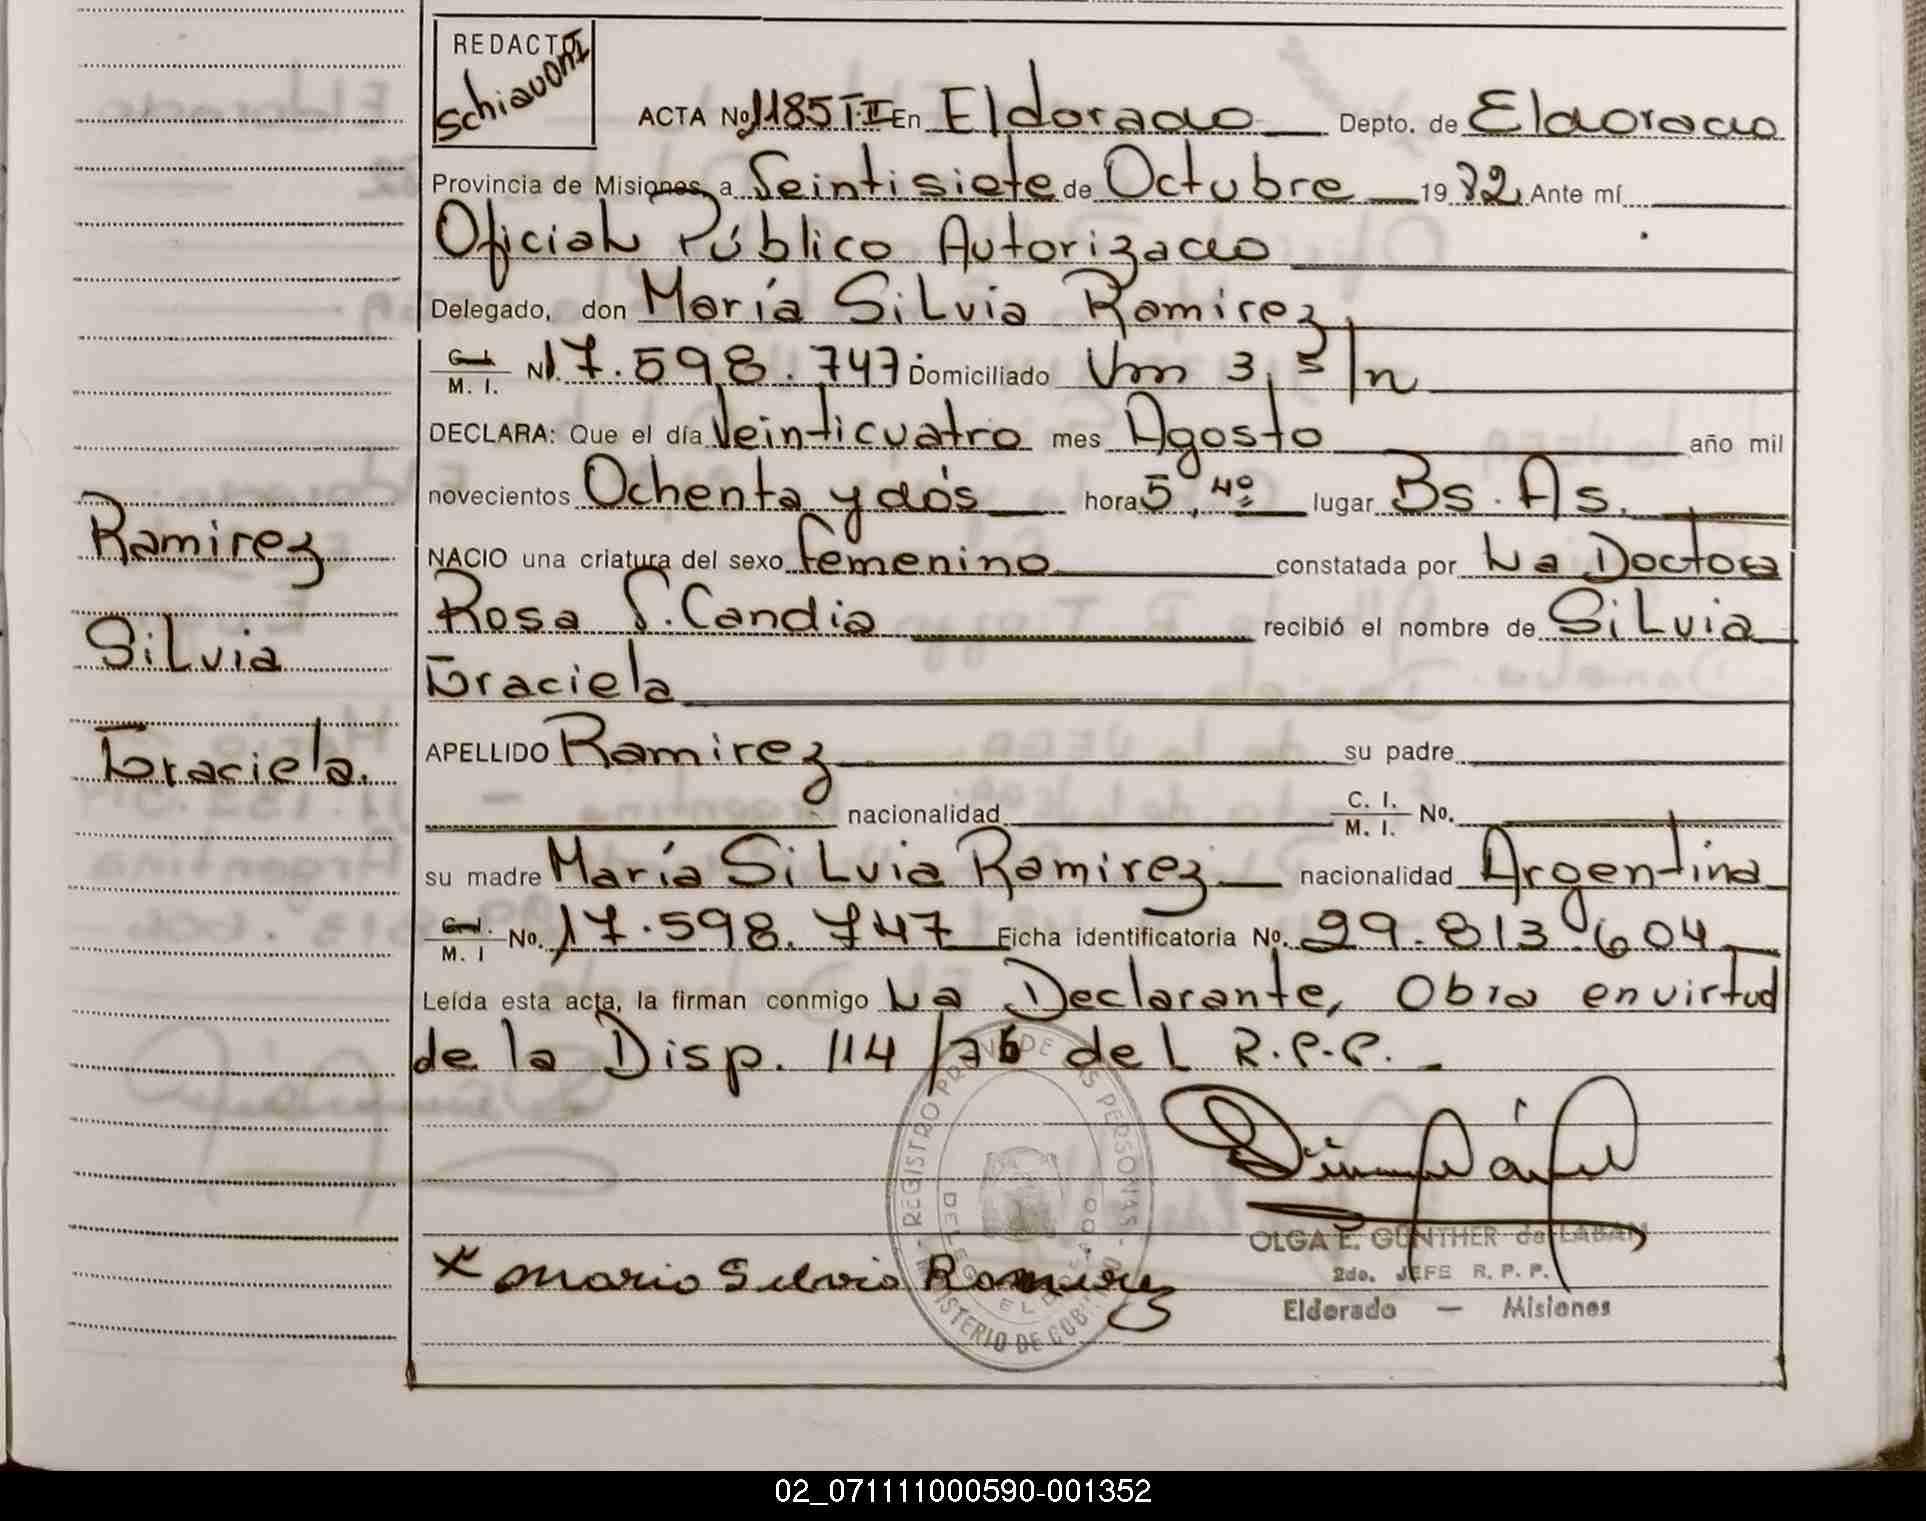 REDACTO
Schiavoni
ACTA No 1185 T.II En Eldorado Depto. de Eldorado
Provincia de Misiones, a Veintisiete de Octubre 1982 Ante mí
Oficial Público Autorizado
Delegado, don María Silvia Ramirez
M. I. N 17.598.747 Domiciliado Km 3, s/n
DECLARA: Que el día Veinticuatro mes Agosto año mil
novecientos Ochenta y dós hora 5,40 lugar Bs. As.
Ramirez
NACIO una criatura del sexo femenino constatada por La Doctora
Rosa S. Candia recibió el nombre de Silvia
Silvia
Graciela
APELLIDO Ramirez su padre
Graciela.
nacionalidad C. I. M. I. No.
su madre María Silvia Ramirez nacionalidad Argentina
M. I No. 17.598.747 Ficha identificatoria No. 29.813.604
Leída esta acta, la firman conmigo La Declarante, Obra en virtud
de la Disp. 114/76 del R.P.P.
REGISTRO PROV. DE LAS PERSONAS - MINISTERIO DE GOBIERNO
ELDORADO
OLGA E. GUNTHER de LABAN
2do. JEFE R. P. P.
x Maria Silvia Ramirez
Eldorado — Misiones
02_071111000590-001352